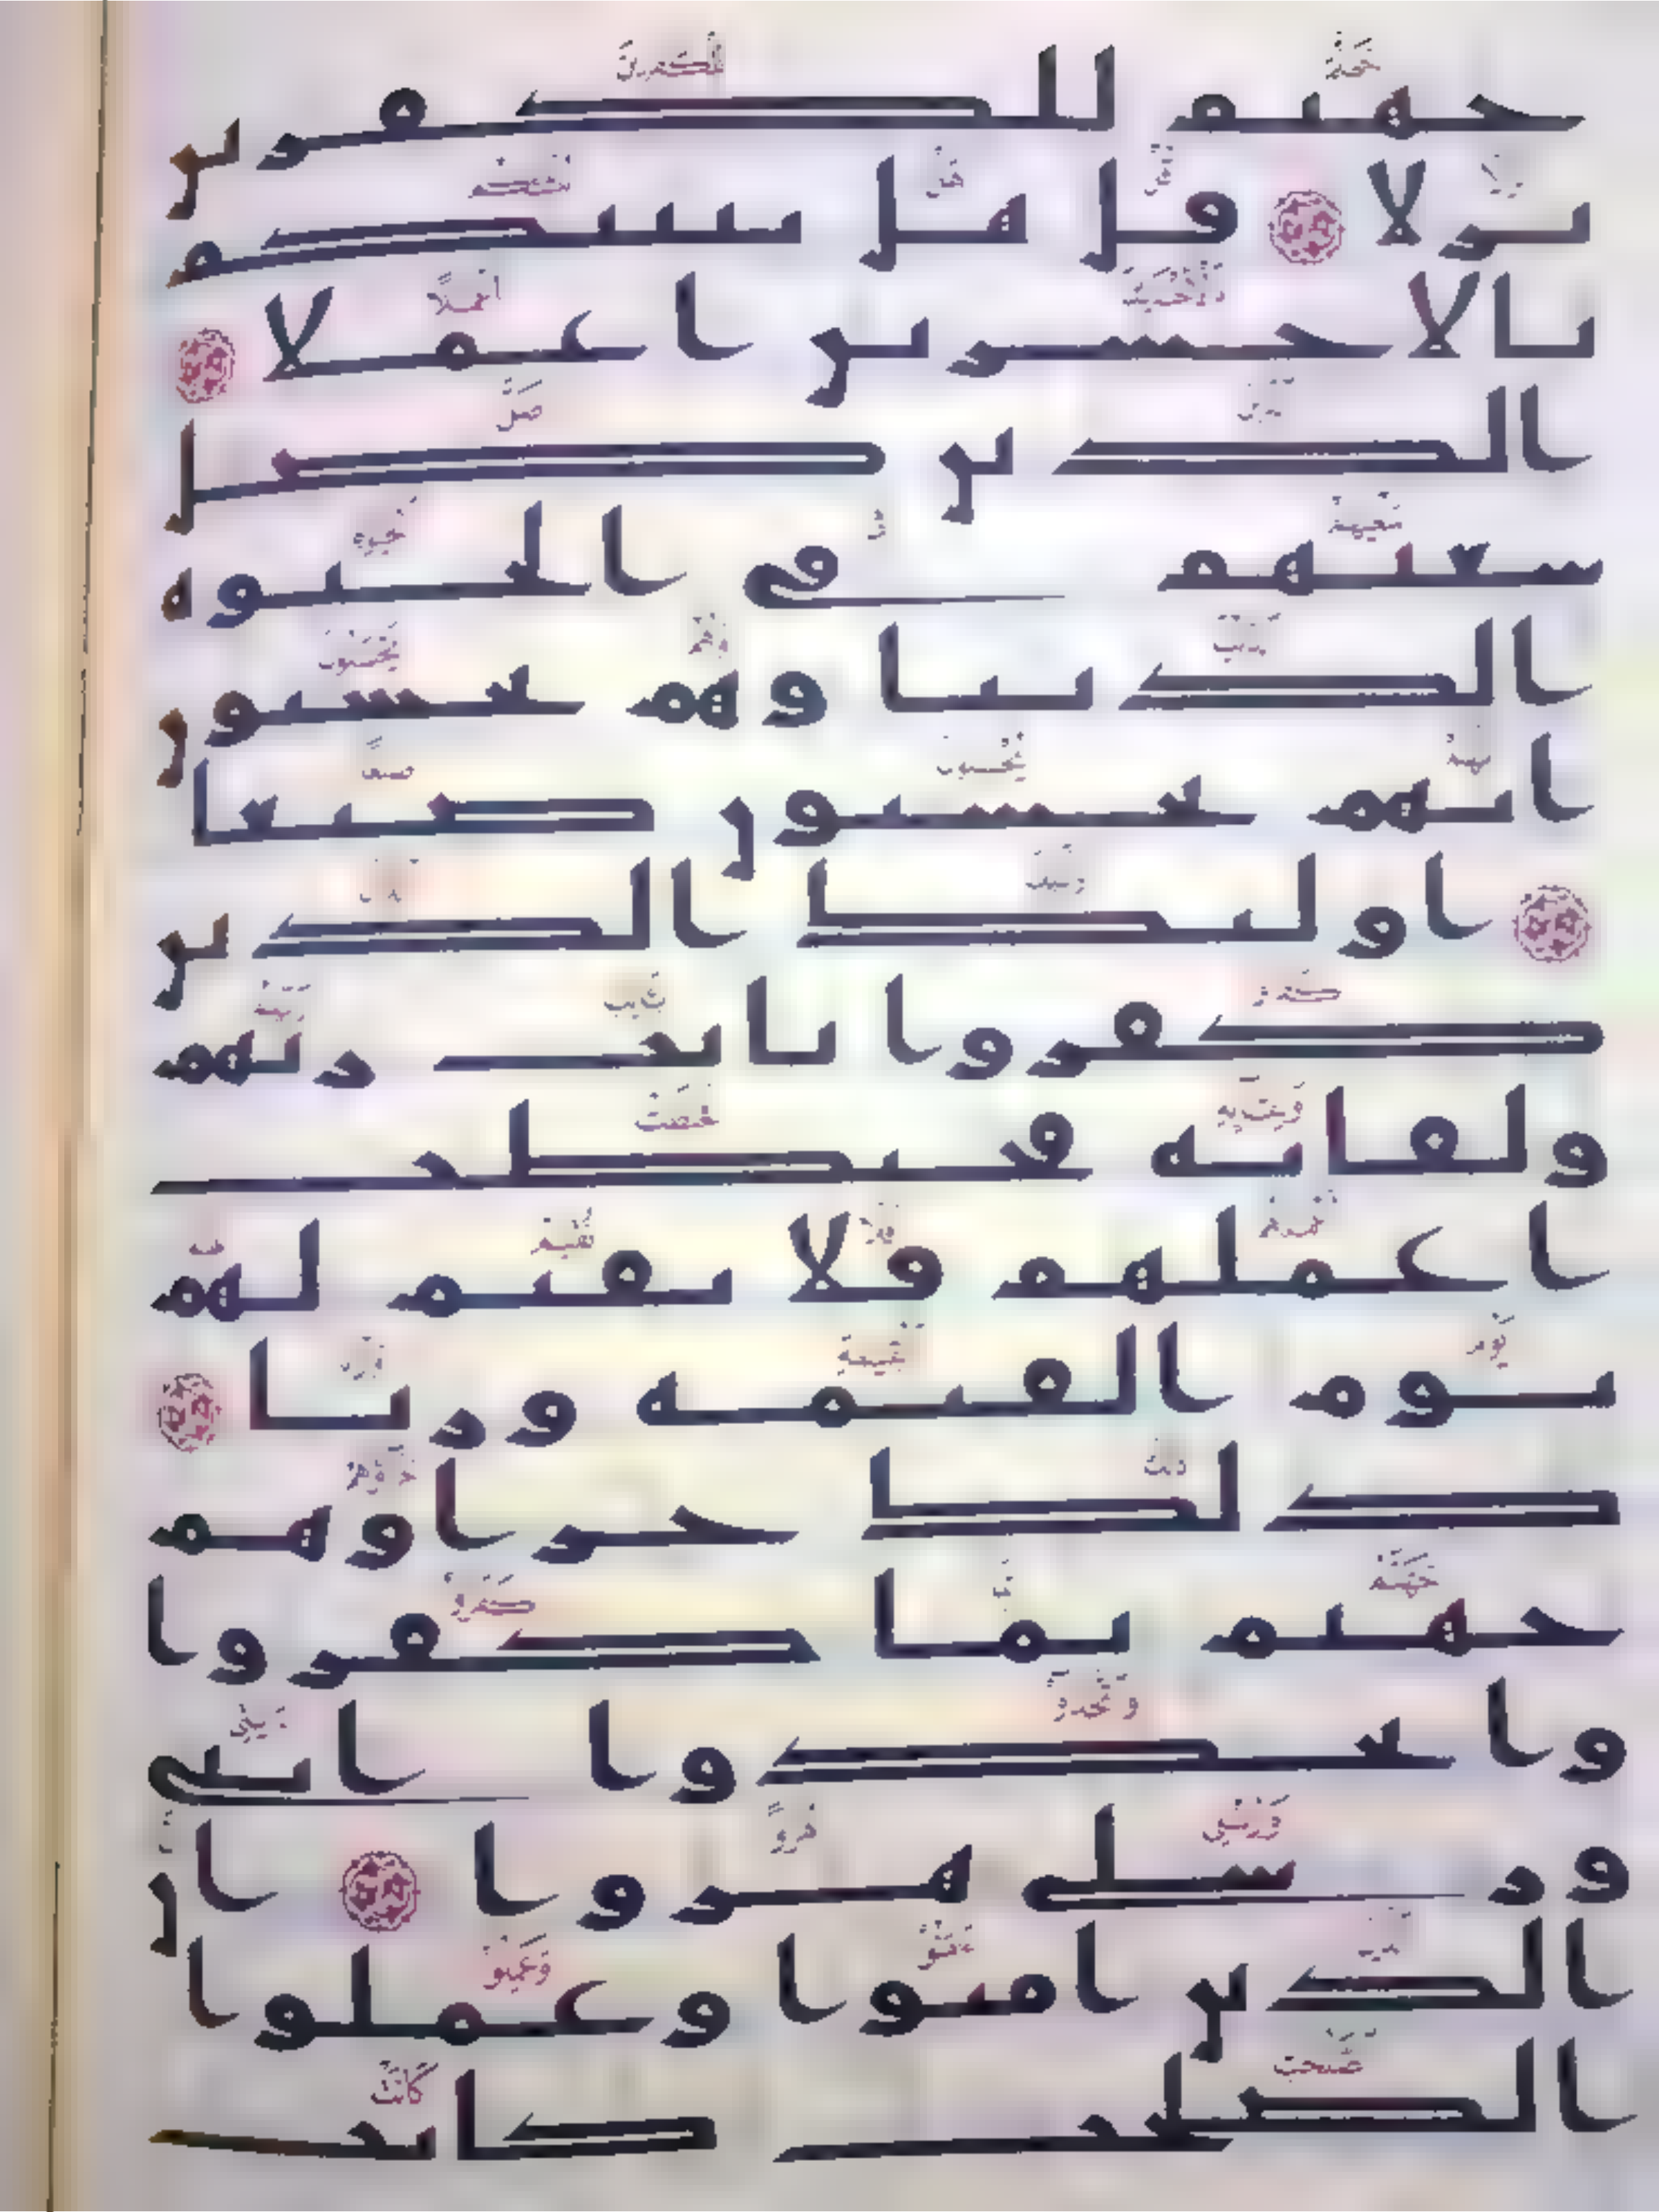 جهنم للكفرين
نزلا ۝ قل هل ننبئكم
بالاخسرين اعملا ۝
الذين ضل
سعيهم في الحيوة
الدنيا وهم يحسبون
انهم يحسنون صنعا
۝ اولئك الذين
كفروا بايت ربهم
ولقائه فحبطت
اعملهم فلا نقيم لهم
يوم القيمة وزنا ۝
ذلك جزاؤهم
جهنم بما كفروا
واتخذوا ايتي
ورسلي هزوا ۝ ان
الذين امنوا وعملوا
الصلحت كانت